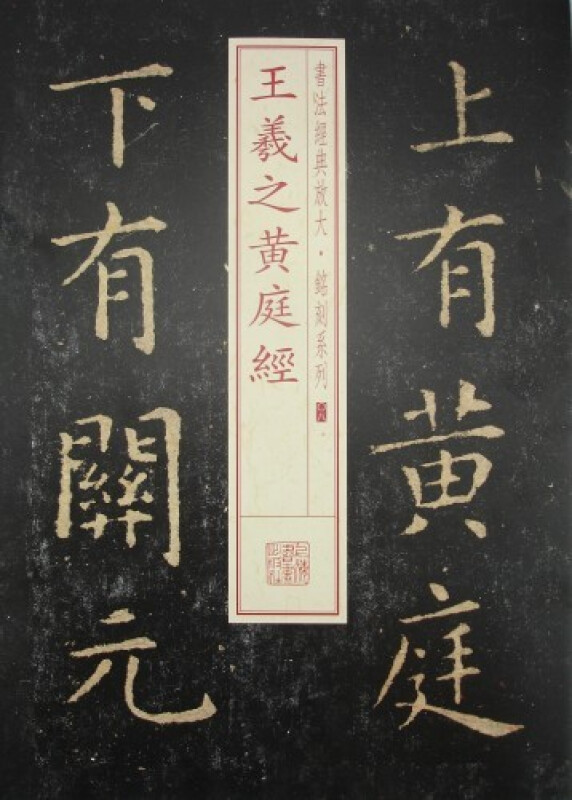 上有黄庭
書法經典放大·銘刻系列
王羲之黄庭經
下有關元